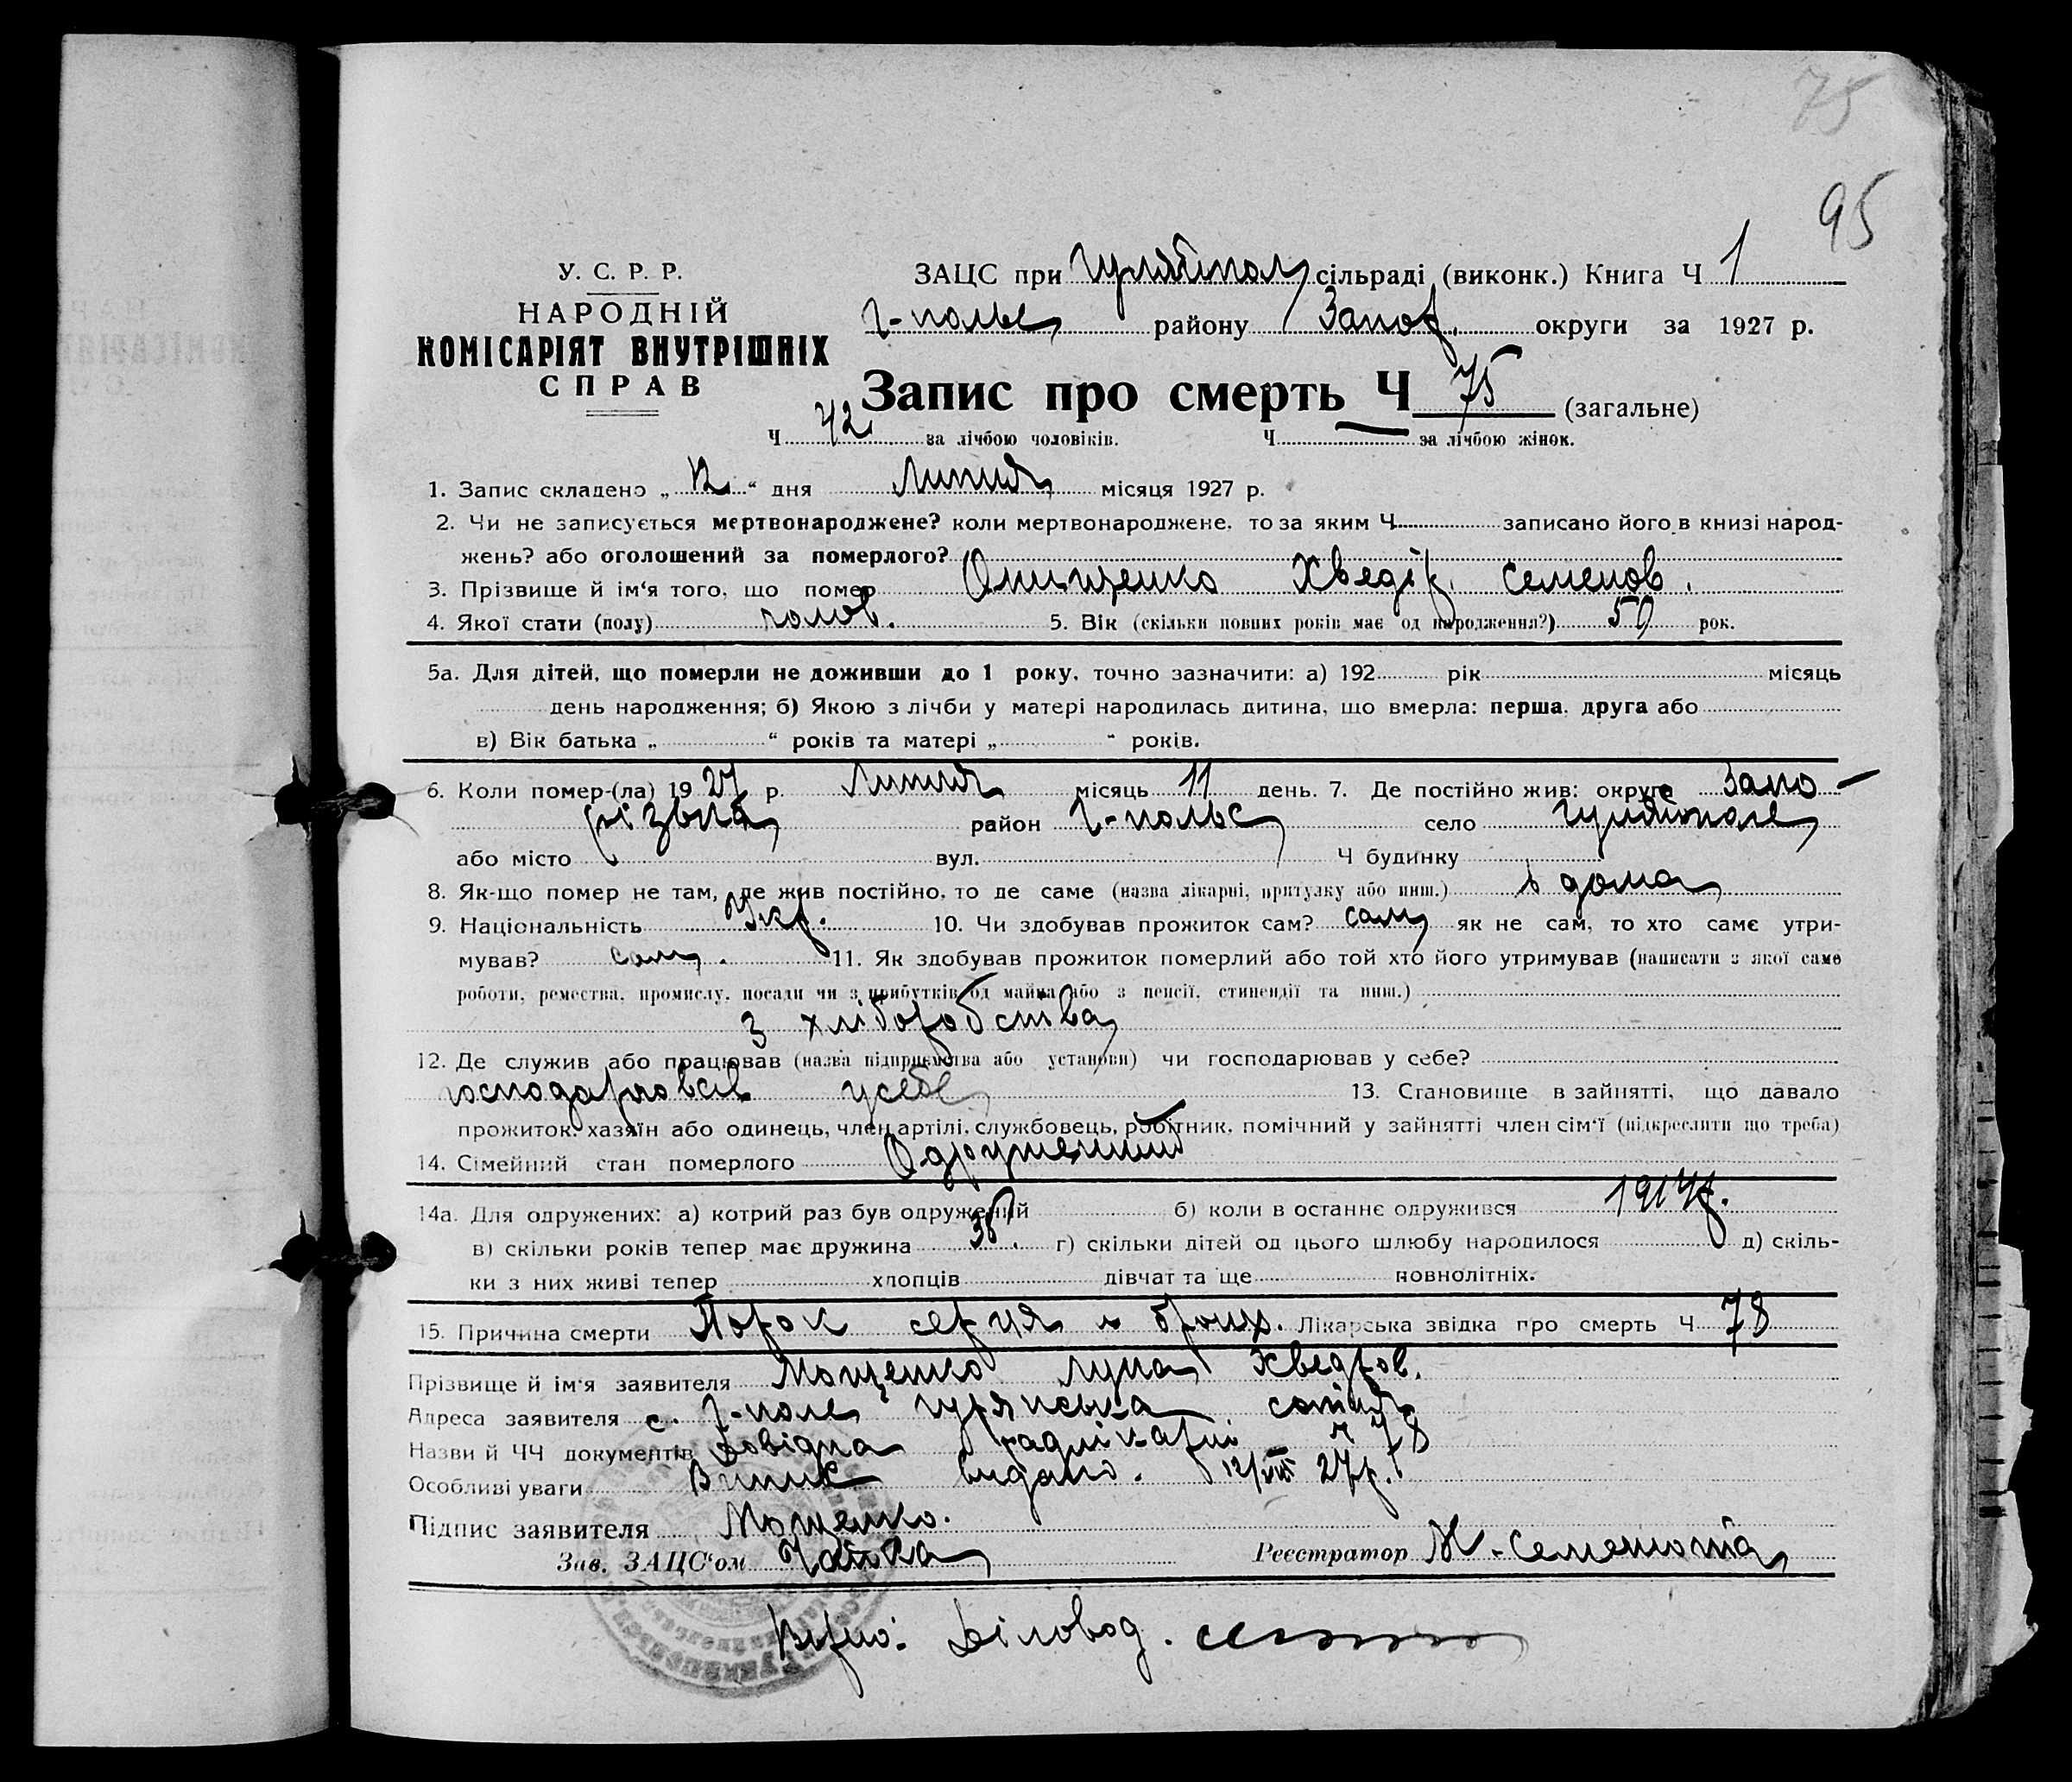 75
95
У. С. Р. Р.
НАРОДНІЙ
КОМІСАРІЯТ ВНУТРІШНІХ
СПРАВ
ЗАЦС при Гуляйпол, сільраді (виконк.) Книга Ч 1
Г-польс району Запор. округи за 1927 р.
Запис про смерть Ч 75 (загальне)
Ч 42 за лічбою чоловіків. Ч — за лічбою жінок.
1. Запис складено „ 12 “ дня Липня місяця 1927 р.
2. Чи не записується мертвонароджене? коли мертвонароджене, то за яким Ч. записано його в книзі народ-
жень? або оголошений за померлого?
3. Прізвище й ім‘я того, що помер Онищенко Хведір Семенов.
4. Якої стати (полу) чолов. 5. Вік (скільки повних років має од народження?) 50 рок.
5а. Для дітей, що померли не доживши до 1 року, точно зазначити: а) 192 рік місяць
день народження; б) Якою з лічби у матері народилась дитина, що вмерла: перша, друга або
в) Вік батька „ “ років та матері „ “ років.
6. Коли помер-(ла) 1927 р. Липня місяць 11 день. 7. Де постійно жив: округа Запо-
різька район Г-польс село Гуляйполе
або місто вул. Ч будинку
8. Як-що помер не там, де жив постійно, то де саме (назва лікарні, притулку або инш.) в дома
9. Національність Укр. 10. Чи здобував прожиток сам? сам як не сам, то хто саме утри-
мував? сам. 11. Як здобував прожиток померлий або той хто його утримував (написати з якої саме
роботи, ремества, промислу, посади чи з прибутків од майна або з пенсії, стипендії та инш.)
з хліборобства
12. Де служив або працював (назва підприємства або установи) чи господарював у себе?
господарював усебе 13. Становище в зайнятті, що давало
прожиток: хазяїн або одинець, член артілі, службовець, робітник, помічний у зайнятті член сім‘ї (підкреслити що треба)
14. Сімейний стан померлого Одружений
14а. Для одружених: а) котрий раз був одружений б) коли в останнє одружився 1914р.
в) скільки років тепер має дружина 38. г) скільки дітей од цього шлюбу народилося д) скіль-
ки з них живі тепер хлопців дівчат та ще повнолітніх.
15. Причина смерти Порок серця и Лікарська звідка про смерть Ч 78
Прізвище й ім‘я заявителя Мощенко Лука Хведров.
Адреса заявителя с. Г-поле сотня
Назви й ЧЧ документів Довідка ч 78
Особливі уваги Випис видано. 12/VII 27р.
Підпис заявителя Мощенко.
Зав. ЗАЦС‘ом Реєстратор
Вірно: Діловод.